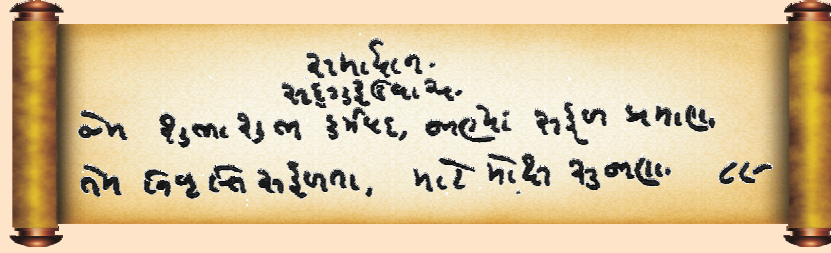 સમાધાન.
સદ્ગુરૂઉવાચ.
જેમ શુભાશુભ કર્મપદ, જાણ્યાં સફળ પ્રમાણ,
તેમ નિવૃત્તિ સફળતા, માટે મોક્ષ સુજાણ. ૮૯